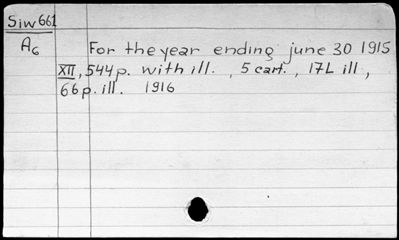 Siw 661
A6 For the year ending june 30 1915
XII, 544 p. with ill. , 5 cart. , 17L ill ,
66 p. ill. 1916